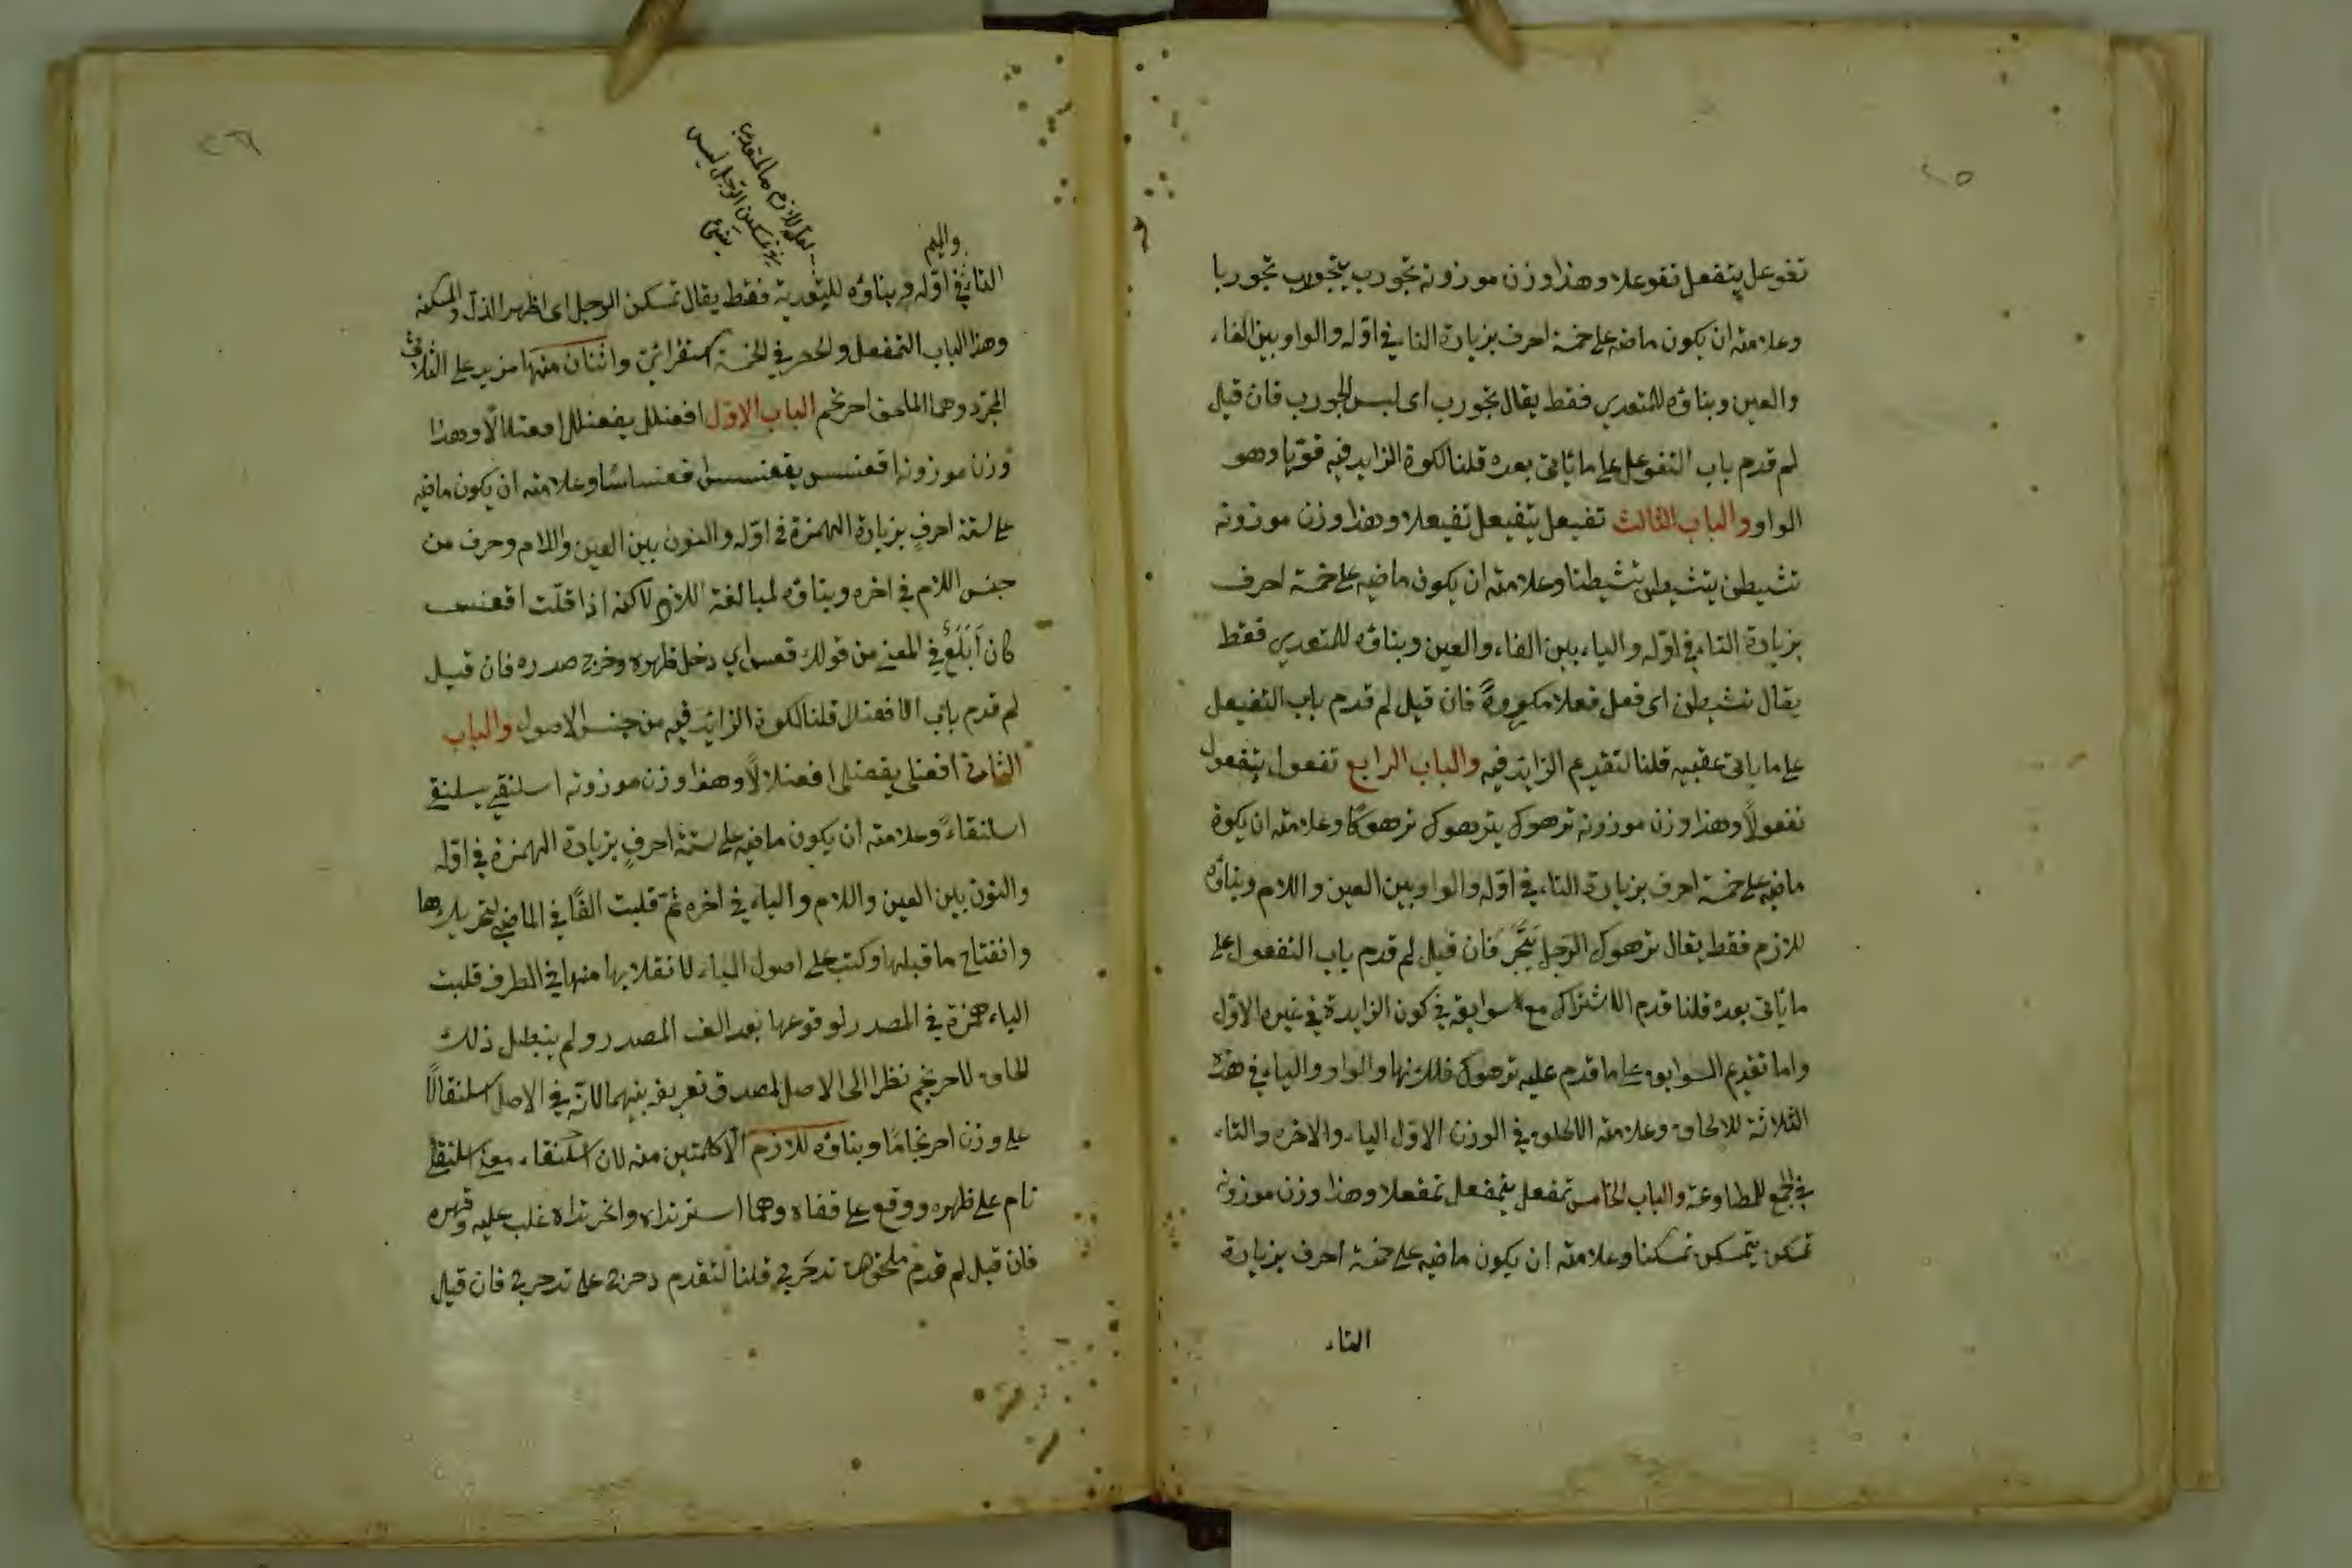 ٢٥
تفوعل يتفوعل تفوعلا وهذا وزن موزونه تجورب يتجورب تجوربا
وعلامته ان يكون ماضيه على خمسة احرف بزيادة التا في اوّله والواو بين الفاء
والعين وبناؤه للمتعدي فقط يقال تجورب اى لبس الجورب فان قيل
لم قدم باب التفوعل على ما يأتي بعده قلنا لكون الزايد فيه قويا وهو
الواو والباب الثالث تفيعل يتفيعل تفيعلا وهذا وزن موزونه
تشيطن يتشيطن تشيطنا وعلامته ان يكون ماضيه على خمسة احرف
بزيادة التاء في اوّله والياء بين الفاء والعين وبناؤه للمتعدي فقط
يقال تشيطن اى فعل فعلا مكروهًا فان قيل لم قدم باب التفيعل
على ما ياتي عقيبه قلنا لتقدم الزايد فيه والباب الرابع تفعول يتفعول
تفعولًا وهذا وزن موزونه ترهوك يترهوك ترهوكًا وعلامته ان يكون
ماضيه على خمسة احرف بزيادة التاء في اوّله والواو بين العين واللام وبناؤه
للازم فقط يقال ترهوك الرّجل فان قيل لم قدم باب التفعول على
ما يأتي بعده قلنا قدم لاشتراك مع سوابقه في كون الزايدة في غيره الاوّل
واما تقديم السوابق على ما قدم عليه ترهوك والواو والياء في هذه
الثلاثة للالحاق وعلامته الالحاق في الوزن الاوّل الياء والاخره والتاء
في الجمع للمطاوعة والباب الخامس تمفعل يتمفعل تمفعلا وهذا وزن موزونه
تمسكن يتمسكن تمسكنا وعلامته ان يكون ماضيه على خمسة احرف بزيادة
التاء
٢٦
والميم
التا في اوّله وبناؤه للتعدية فقط يقال تمسكن الرجل اى اظهر الذلّ والمسكنة
وهذا الباب التمفعل واثنان منها مزيد على الثلاثي
المجرّد وهما الملحق احرنجم الباب الاوّل افعنلل يفعنلل افعنلالًا وهذا
وزن موزونه اقعنسس يقعنسس اقعنساسًا وعلامته ان يكون ماضيه
على ستة احرفٍ بزيادة الهمزة في اوّله والنون بين العين واللام وحرف من
جنس اللام في اخره وبناؤه لمبالغة اللازم لاكنه اذا قلت اقعنسس
كان أَبْلَغُ في المعنى من قولك قعس اي دخل ظهره وخرج صدره فان قيل
لم قدم باب الافعنلال قلنا لكون الزايد فيه من جنس الاصول والباب
الثاني افعنلى يفعنلى افعنلالًا وهذا وزن موزونه اسلنقى يسلنقى
اسلنقاءً وعلامته ان يكون ماضيه على ستّة احرفٍ بزيادة الهمزة في اوّله
والنون بين العين واللام والياء في اخره ثمّ قلبت الفًا في الماضي لتحريكها
وانفتاح ما قبلها وكتب على اصول الياء لانقلابها منها في الطرف قلبت
الياء همزة في المصدر لوقوعها بعد الف المصدر ولم يبطل ذلك
الحاق لاحرنجم نظرا الى الاصل لصدق تعريفه بينهما لانّه في الاصل اسلنقالًا
على وزن احرنجامًا وبناؤه للازم الا كلمتين منه لان اسلنقاء معنى اسلنقى
نام على ظهره ووقع على قفاه وهما اسرنداه واغرنداه غلب عليه وقهره
فان قيل لم قدم ملحق تدحرج قلنا لتقدم دحرج على تدحرج فان قيل